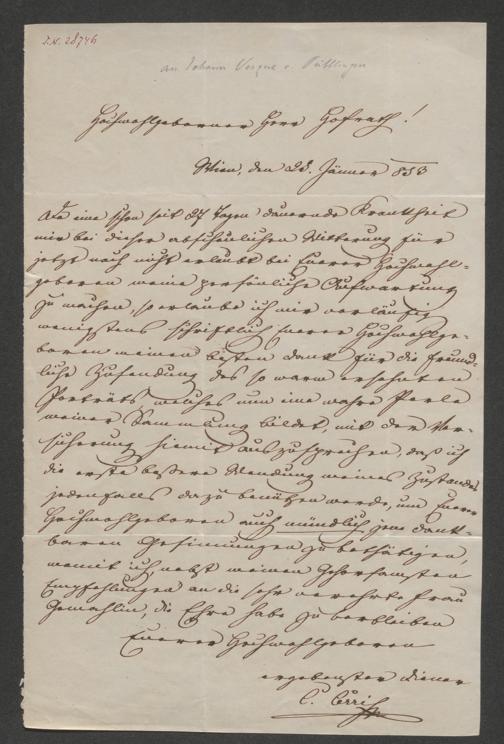 I.N. 28746
an Johann Vesque v. Püttlingen
Hochwohlgeborner Herr Hofrath!
Wien, den 28. Jänner 853
Da eine schon seit 27 Tagen dauernde Krankheit
mir bei dieser abscheulichen Witterung für
jetzt noch nicht erlaubt bei Euerer Hochwohl-
geboren meine persönliche Aufwartung
zu machen, so erlaube ich mir vorläufig
wenigstens schriftlich Euerer Hochwohlge-
boren meinen besten Dank für die freund-
liche Zusendung des so warm ersehnten
Porträts welches nun eine wahre Perle
meiner Sammlung bildet, mit der Ver-
sicherung hiemit auszusprechen, daß ich
die erste bessere Wendung meines Zustandes
jedenfalls dazu benützen werde, um Euerer
Hochwohlgeboren auch mündlich jene dank-
baren Gesinnungen zu bethätigen,
womit ich nebst meinen gehorsamsten
Empfehlungen an die sehr verehrte Frau
Gemahlin, die Ehre habe zu verbleiben
Euerer Hochwohlgeboren
ergebenster Diener
C.